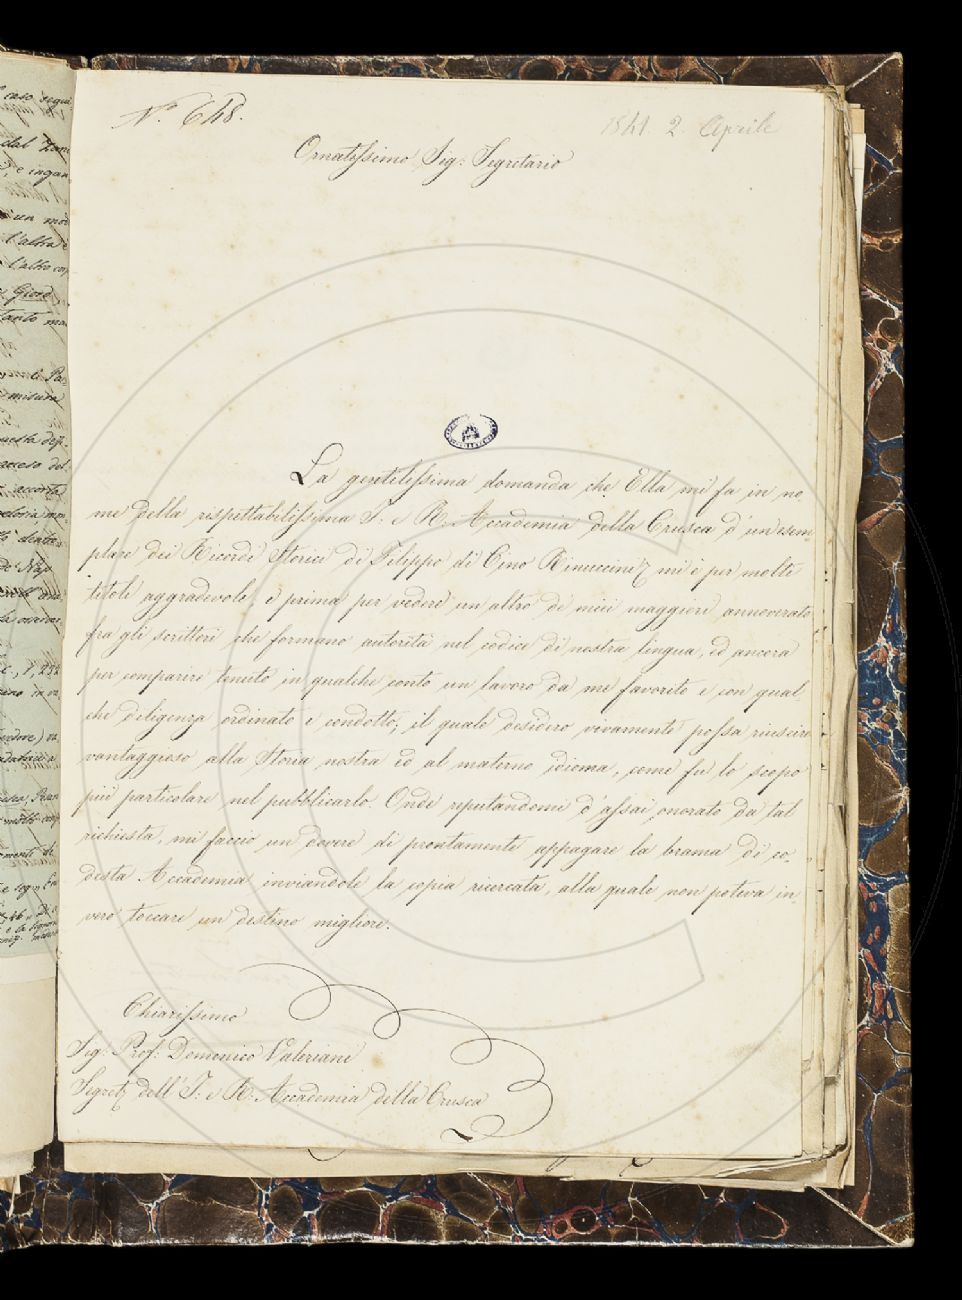 N.° 648.
1841. 2. Aprile
Ornatissimo Sig: Segretario
La gentilissima domanda che Ella mi fa in no,
me della rispettabilissima I. e R. Accademia della Crusca d'un esem
plare dei Ricordi Storici di Filippo di Cino Rinuccini, mi è per molti
titoli aggradevole, e prima per vedere un altro de miei maggiori annoverato
fra gli scrittori che formano autorità nel codice di nostra lingua, ed ancora
per comparire tenuto in qualche conto un lavoro da me favorito e con qual
che diligenza ordinato e condotto; il quale desidero vivamente possa riuscire
vantaggioso alla Storia nostra ed al materno idioma, come fu lo scopo
più particolare nel pubblicarlo. Onde reputandomi d'assai onorato da tal
richiesta, mi faccio un dovere di prontamente appagare la brama di co,
desta Accademia inviandole la copia ricercata, alla quale non poteva in
vero toccare un destino migliore.
Chiarissimo
Sig: Prof: Domenico Valeriani
Segret. dell'I. e R. Accademia della Crusca